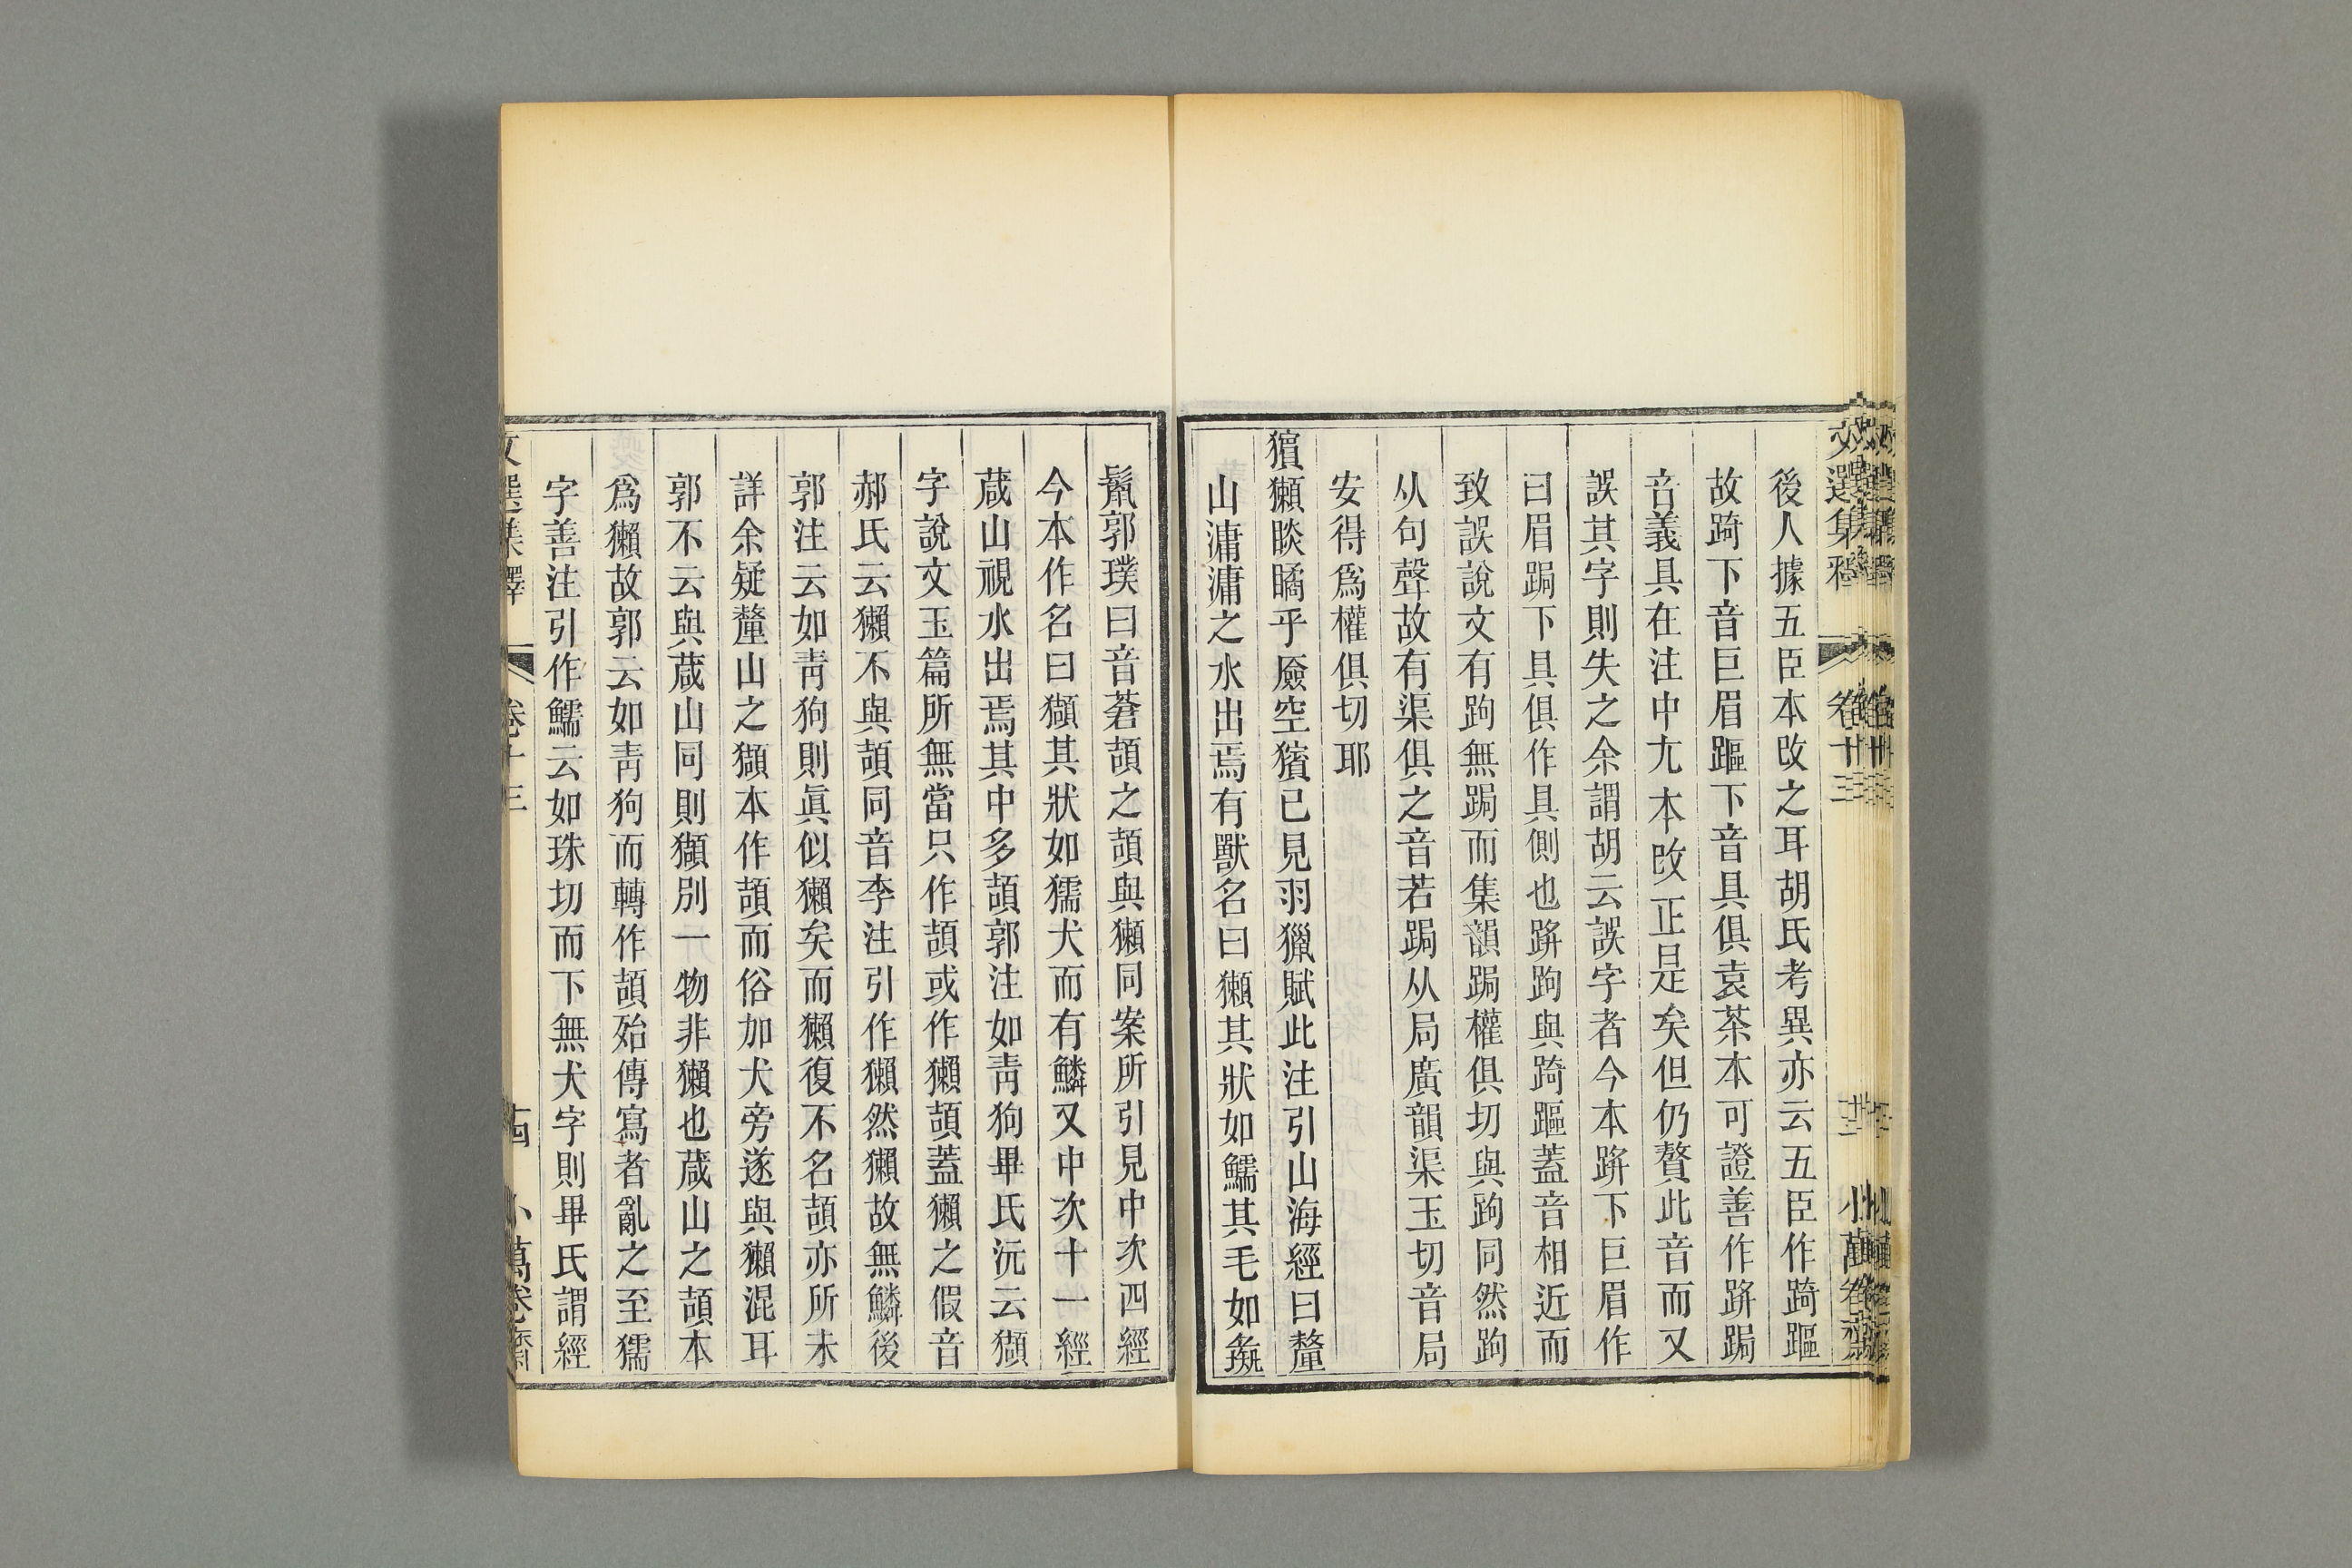 文選集釋 卷十三 小萬卷齋
後人據五臣本改之耳胡氏考異亦云五臣作踦䟣
故踦下音巨眉䟣下音具俱袁茶本可證善作跰跼
音義具在注中尢本改正是矣但仍贅此音而又
誤其字則失之余謂胡云誤字者今本跰下巨眉作
曰眉跼下具俱作具側也跰跔與踦䟣蓋音相近而
致誤說文有跔無跼而集韻跼權俱切與跔同然跔
从句聲故有渠俱之音若跼从局廣韻渠玉切音局
安得爲權俱切耶
獱獺睒瞲乎厱空獱已見羽獵賦此注引山海經曰釐
山滽滽之水出焉有獸名曰獺其狀如鱬其毛如彘
鬛郭璞曰音蒼頡之頡與獺同案所引見中次四經
今本作名曰𤢹其狀如獳犬而有鱗又中次十一經
葴山視水出焉其中多頡郭注如靑狗畢氏沅云𤢹
字說文玉篇所無當只作頡或作獺頡蓋獺之假音
郝氏云獺不與頡同音李注引作獺然獺故無鱗後
郭注云如靑狗則眞似獺矣而獺復不名頡亦所未
詳余疑釐山之𤢹本作頡而俗加犬旁遂與獺混耳
郭不云與葴山同則𤢹別一物非獺也葴山之頡本
爲獺故郭云如靑狗而轉作頡殆傳寫者亂之至獳
字善注引作鱬云如珠切而下無犬字則畢氏謂經
文選集釋 卷十三 十四 小萬卷齋